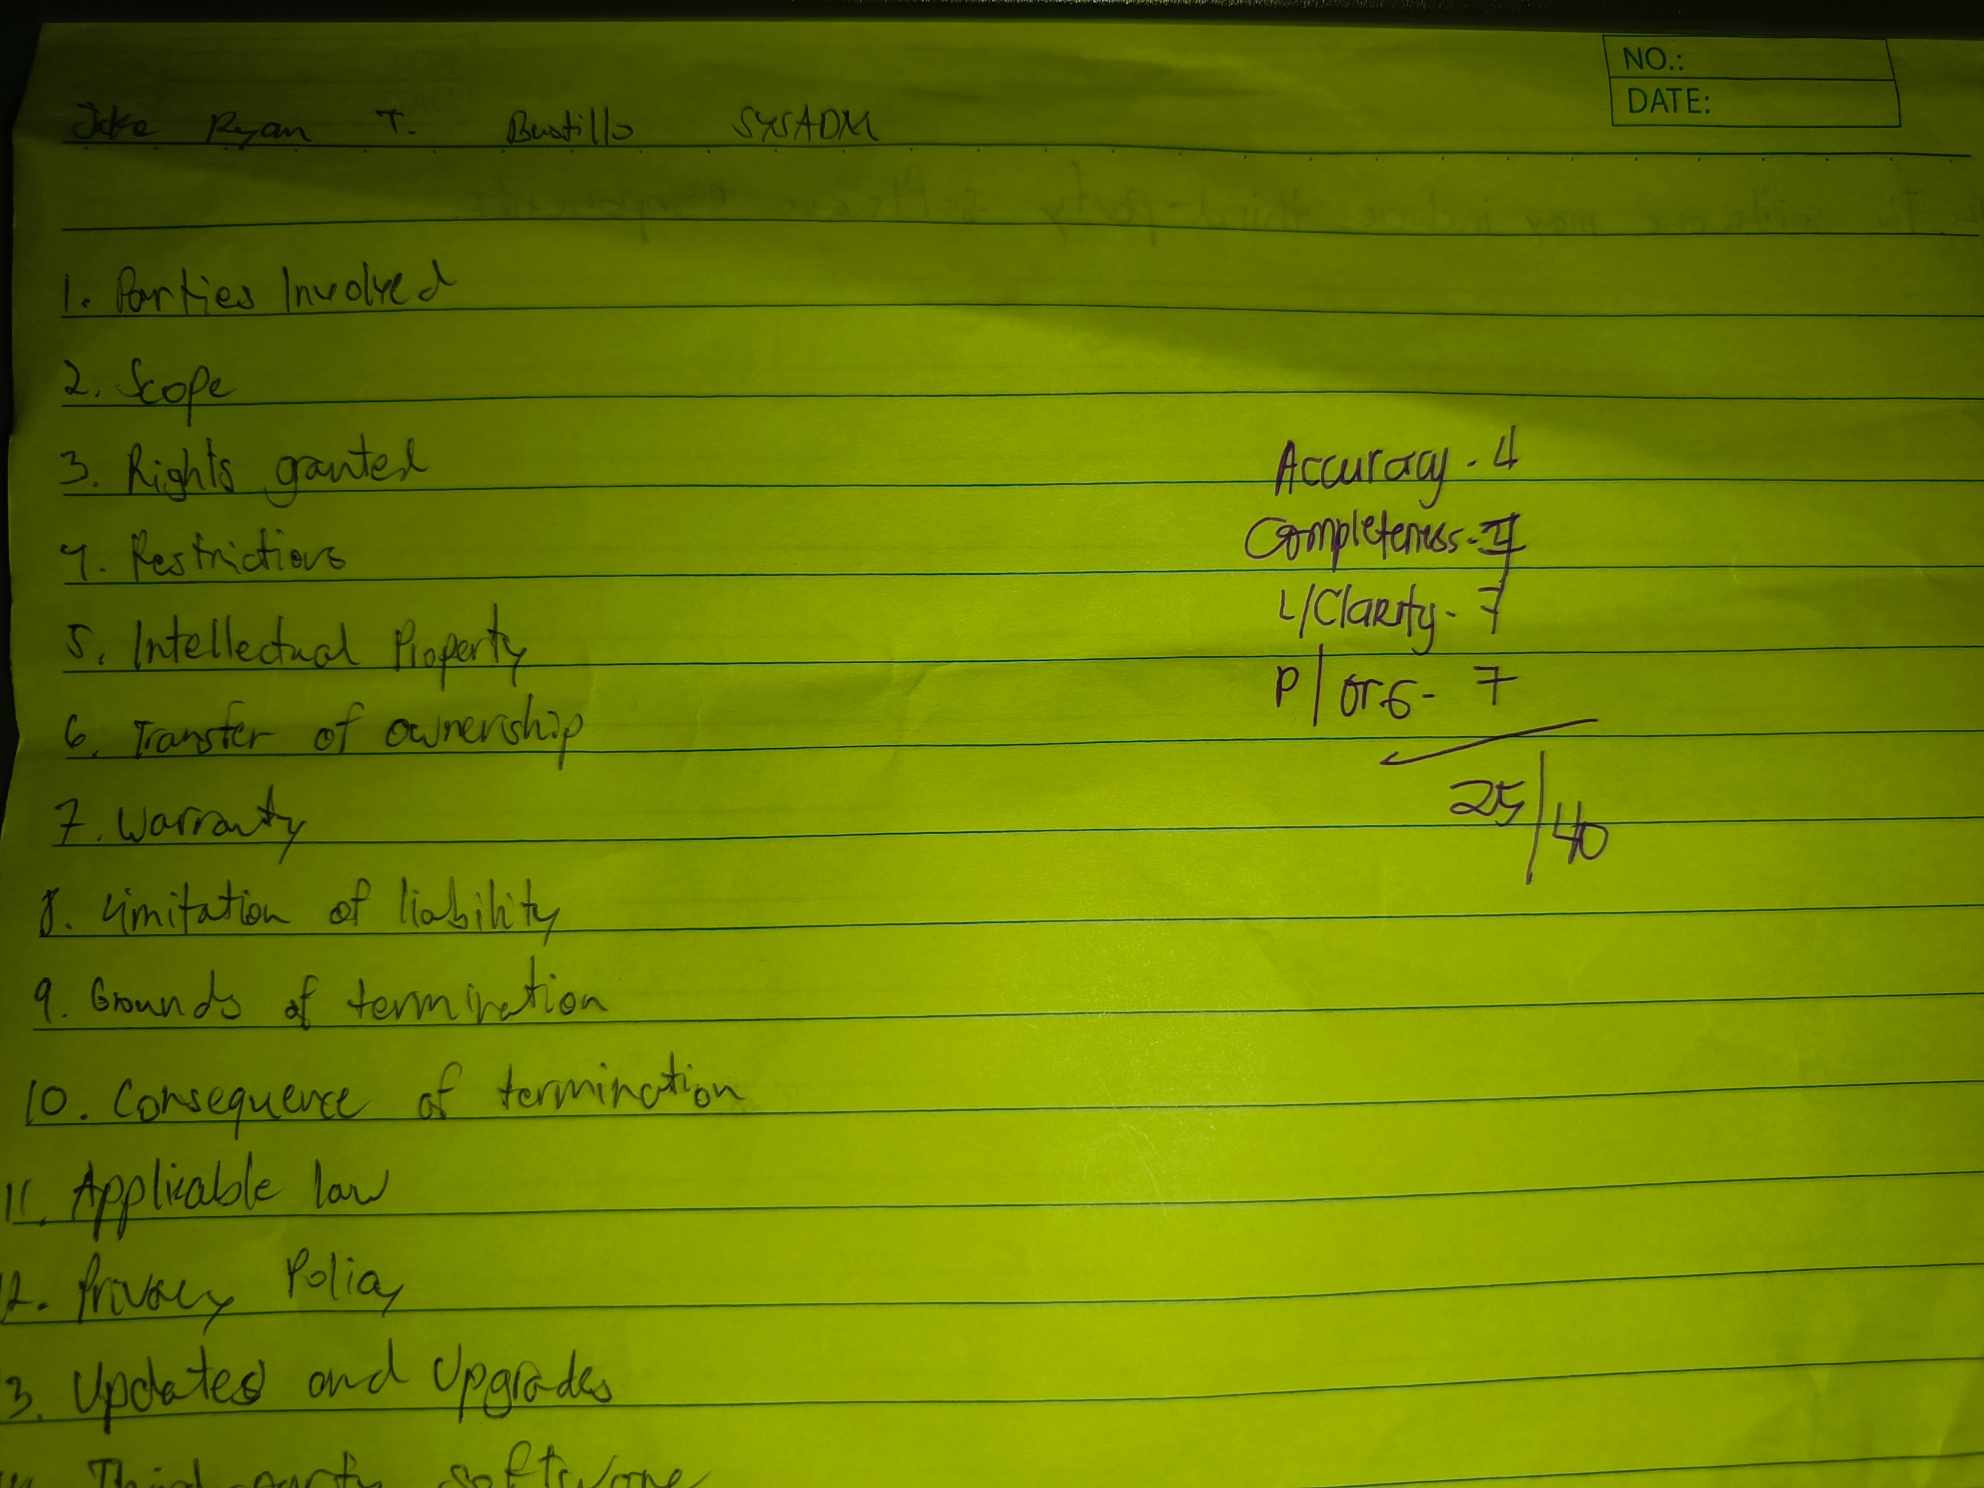 NO.:
DATE:
Jake Ryan T. Bustillo SYSADM
1. Parties Involved
2. Scope
3. Rights granted
4. Restrictions
5. Intellectual Property
6. Transfer of ownership
7. Warranty
8. Limitation of liability
9. Grounds of termination
10. Consequence of termination
11. Applicable law
12. Privacy Policy
3. Updates and Upgrades
Third-party software
Accuracy - 4
Completeness -
L/Clarity - 7
P/Org - 7
25/40